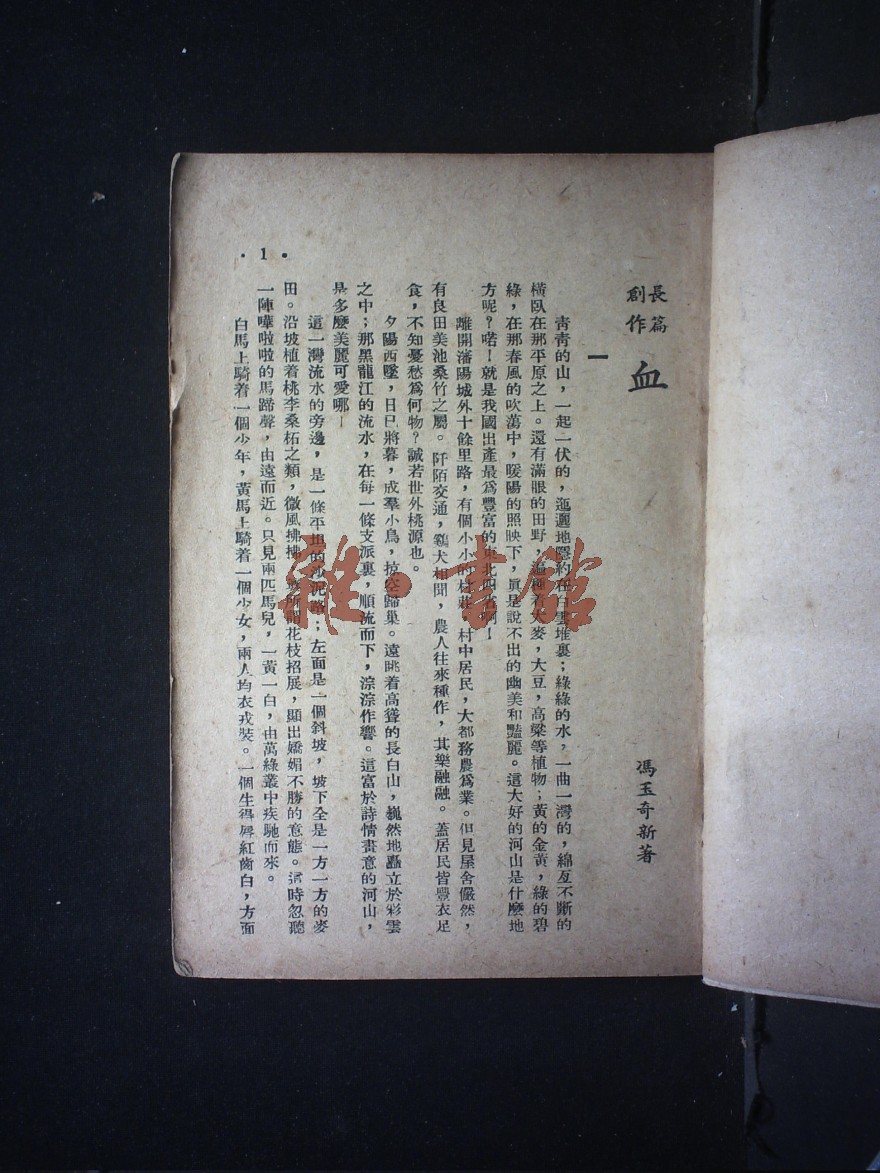 長篇
創作
血
馮玉奇新著
一
青青的山，一起一伏的，迤邐地隱約在白雲堆裏；綠綠的水，一曲一灣的，綿亙不斷的
橫臥在那平原之上。還有滿眼的田野，遍種着大麥，大豆，高粱等植物；黃的金黃，綠的碧
綠，在那春風的吹蕩中，暖陽的照映下，眞是說不出的幽美和豔麗。這大好的河山是什麼地
方呢？喏！就是我國出產最爲豐富的東北四省啊！
離開瀋陽城外十餘里路，有個小小的村莊，村中居民，大都務農爲業。但見屋舍儼然，
有良田美池桑竹之屬。阡陌交通，鷄犬相聞，農人往來種作，其樂融融。蓋居民皆豐衣足
食，不知憂愁爲何物？誠若世外桃源也。
夕陽西墜，日已將暮，成羣小鳥，掠空歸巢。遠眺着高聳的長白山，巍然地矗立於彩雲
之中；那黑龍江的流水，在每一條支派裏，順流而下，淙淙作響。這富於詩情畫意的河山，
是多麼美麗可愛哪！
這一灣流水的旁邊，是一條平坦的沙泥路；左面是一個斜坡，坡下全是一方一方的麥
田。沿坡植着桃李桑柘之類，微風拂拂，眞所謂花枝招展，顯出嬌媚不勝的意態。這時忽聽
一陣嘩啦啦的馬蹄聲，由遠而近。只見兩匹馬兒，一黃一白，由萬綠叢中疾馳而來。
白馬上騎着一個少年，黃馬上騎着一個少女，兩人均衣戎裝。一個生得唇紅齒白，方面
·1·
雅·書館